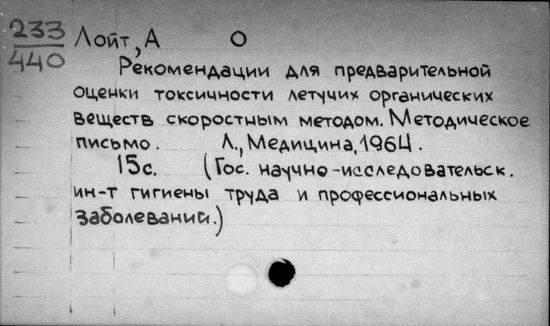 233
440
Лойт, А О
Рекомендации для предварительной
оценки токсичности летучих органических
веществ скоростным методом. Методическое
письмо. Л., Медицина, 1964.
15с. (Гос. научно-исследовательск.
ин-т гигиены труда и профессиональных
заболеваний.)